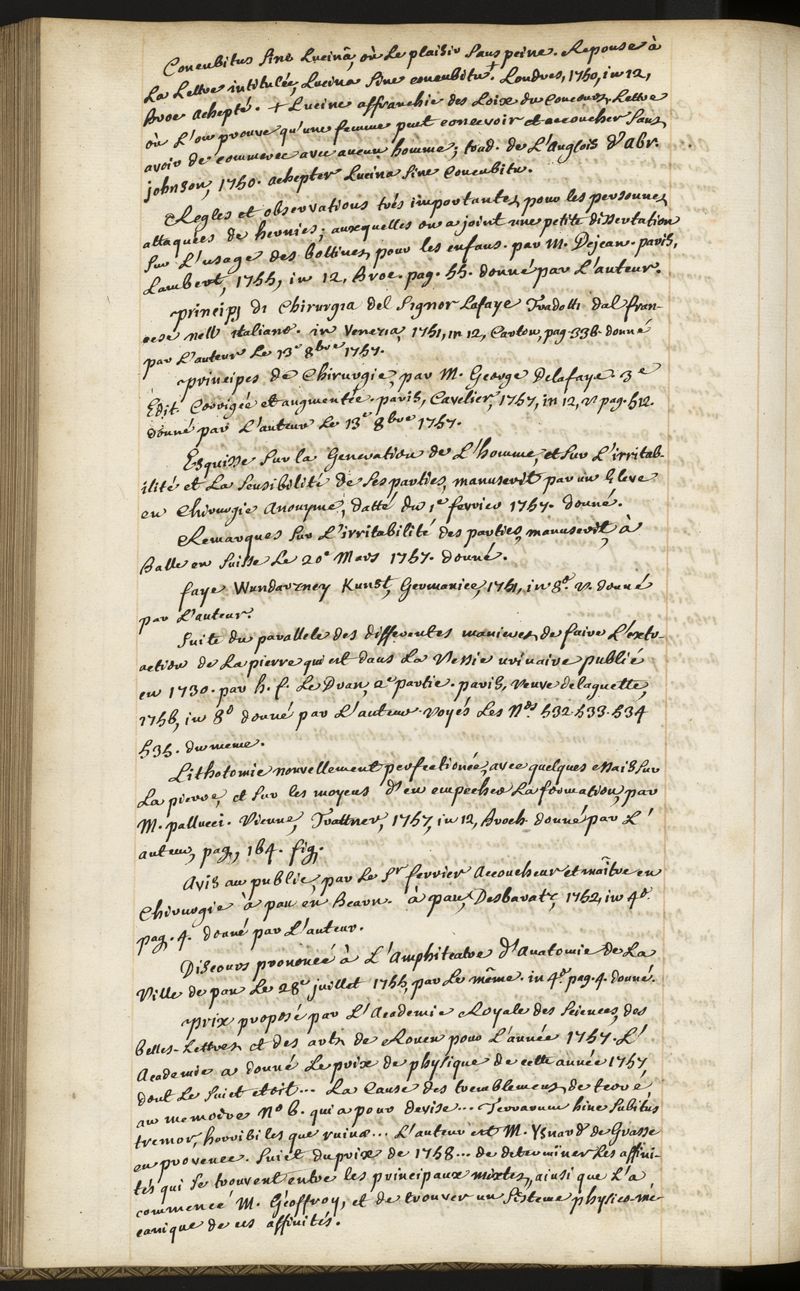 Concubitus sine Lucinâ, où Le plaisir sans peine. Reponse à
La Lettre intitulée, Lucina sine concubitu. + Londres, 1750, in 12,
Broc achepté. + Lucine affranchie des Loix du Concours, Lettre
où L'on prouve qu'une femme peut concevoir et accoucher sans
avoir de commerce avec aucun homme; trad. de L'Anglois d'Abr.
johnson, 1750. achepter Lucina sine Concubitu.
Regles et observations trés importantes, pour les personnes
attaquées de hernies; auxquelles on a joint une petite dissertation
sur L'usage des bottines, pour les enfans. par M. Dejean. paris,
Lambert, 1755, in 12, Broc. pag. 55. donné par L'auteur.
principj di Chirurgia del Signor Lafaye Tradotti dal fran-
cese nell' italiano. in Venezia, 1751, in 12, Carton, pag. 336. donné
par L'auteur Le 13e 8bre 1757.
principes de Chirurgie, par M. George Delafaye. 3e
Édit. Corrigée et augmentée. paris, Cavelier, 1757, in 12, v. pag. 512.
donné par L'auteur Le 13e 8bre 1757.
Esquisse sur la Generation de L'homme, et sur L'irritab-
ilité et La sensibilité de ses parties, manuscrit par un Eleve
en Chirurgie Anonyme, datté du 1e fevrier 1757. donné.
Remarques sur L'irritabilité des parties, manuscrit, à
Balle en suisse Le 20e Mars 1757. donné.
faye Wundarzney Kunst, Germanice, 1751, in 8o. v. donné
par L'auteur.
suite du parallele des differentes manieres, de faire L'extr-
action de La pierre qui est dans La Vessie urinaire publié
en 1730. par h. f. Le Dran, 2e partie. paris, Veuve delaguette,
1756, in 8o donné par L'auteur. Voyés Les Nos 532. 533. 534
535. du meme.
Lithotomie nouvellement perfectionée, avec quelques essais sur
La pierre, et sur les moyens d'en empecher La formation, par
M. pallucci. Vienne, Trattner, 1757, in 12, Broch. donné par L'
auteur, pag, 164. fig.
Avis au public, par Le Sr ferrier Accoucheur et maître en
Chirurgie à pau en Bearn. à pau, Desbaratz, 1752, in 4o.
pag. 4. donné par L'auteur.
Discours prononcé à L'Amphiteatre d'Anatomie de La
Ville de pau Le 28e juillet 1755, par Le même. in 4o. pag. 4. donné.
prix proposé par L'Academie Royale des Sciences, des
belles-Lettres, et des arts de Rouen pour L'année 1757. L'
Academie a donné Le prix de physique de cette année 1757
dont Le sujet etoit... La Cause des tremblemens, de terre,
au memoire No 6. qui a pour devise... Terrarum hinc subitus
tremor, horribiles que ruinæ... L'auteur est M. Ysnard de Grasse
en provence. sujet du prix de 1758... de determiner Les affini-
tés qui se trouvent entre les principaux mixtes, ainsi que L'a
commencé M. Geoffroy, et de trouver un sisteme physico-mé-
canique de ces affinités.